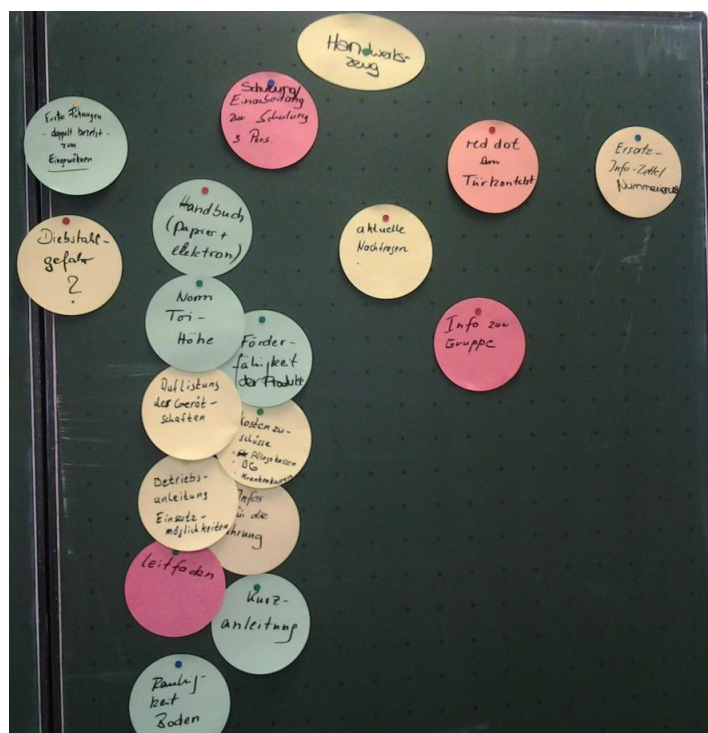 Handwerks-
zeug
Schulung/
Einarbeitung
zur Schulung
3 Pers.
Erste Führungen
- doppelt besetzt -
zum
Eingewöhnen
red dot
am
Türkontakt
Ersatz-
Info-Zettel
Diebstahl-
gefahr
?
Handbuch
(Papier +
elektron.)
aktuelle
Nachfragen
Norm
Toi-
Höhe
Förder-
fähigkeit
der Produkte
Info zur
Gruppe
Auflistung
der Gerät-
schaften
Kostenzu-
schüsse
Pflegekassen
BG
Krankenkassen
Betriebs-
anleitung
Einsatz-
möglichkeiten
Infos
für die
Leitfaden
Kurz-
anleitung
Boden